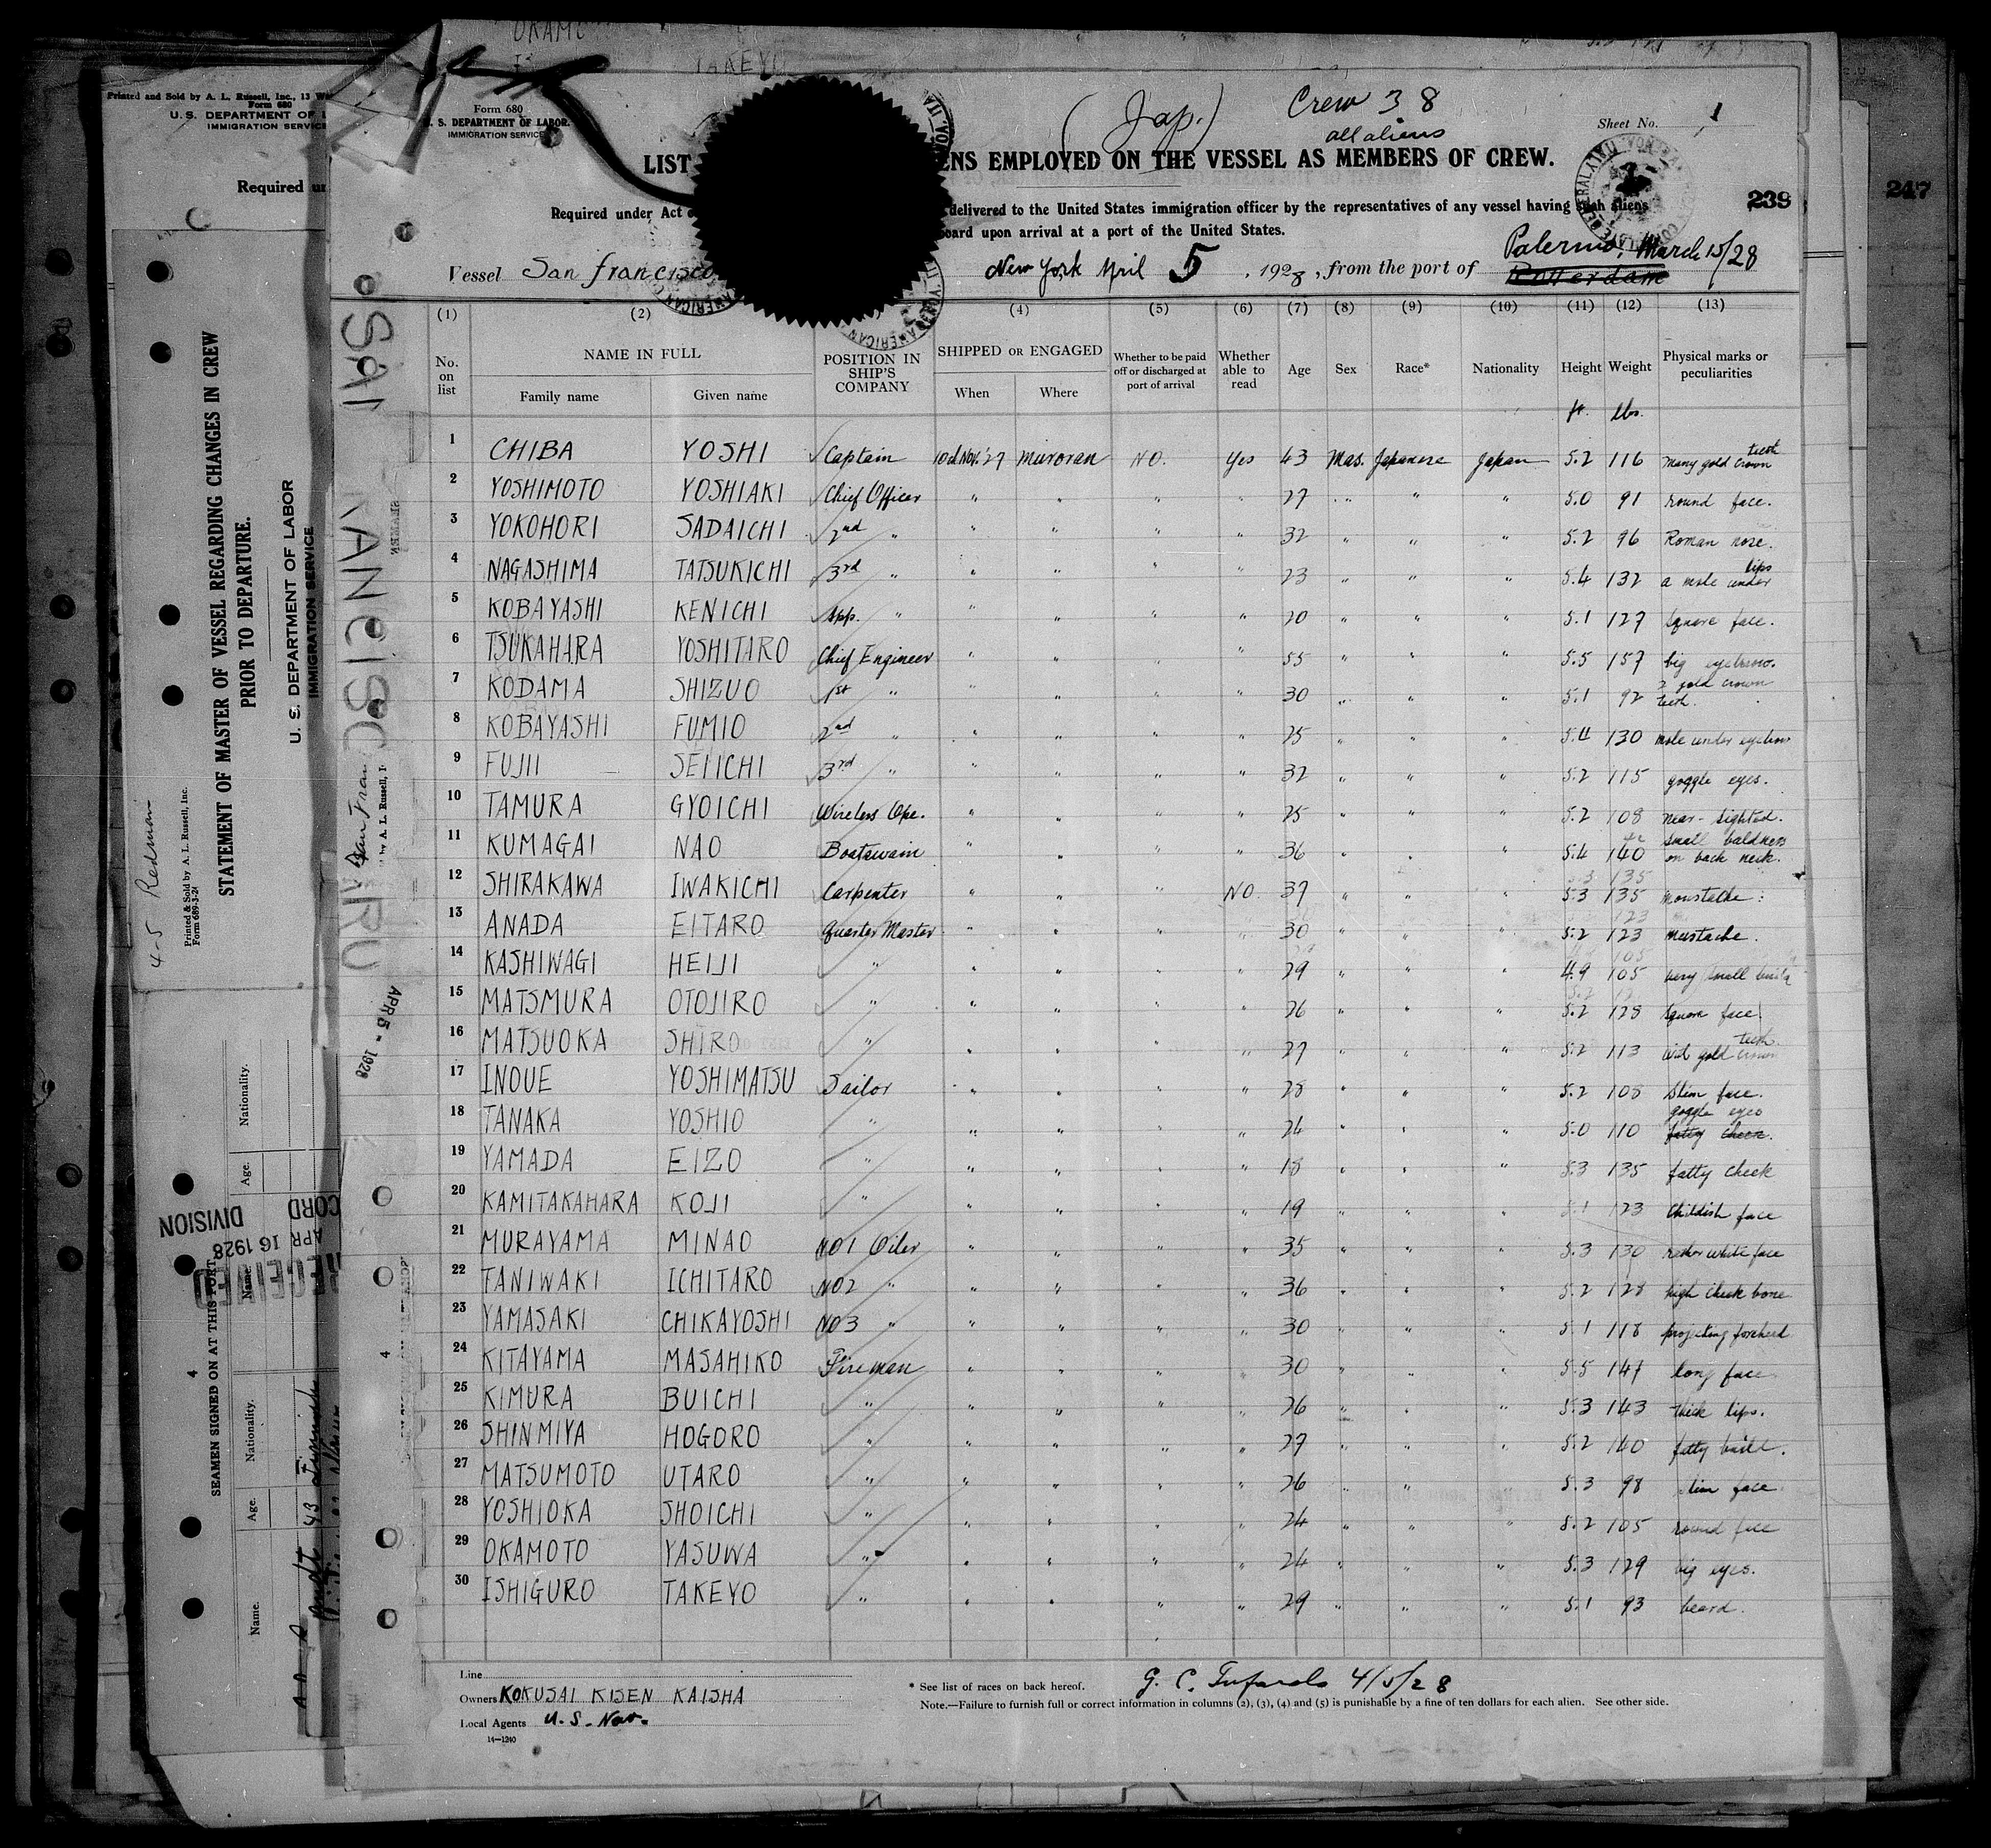 OKAMO
TAKEYO
Printed and Sold by A. L. Russell, Inc., 13 W
Form 680
U. S. DEPARTMENT OF L
IMMIGRATION SERVICE
Required un
Form 680
U. S. DEPARTMENT OF LABOR.
IMMIGRATION SERVICE
(Jap.) Crew 38
all aliens
Sheet No. 1
LIST ENS EMPLOYED ON THE VESSEL AS MEMBERS OF CREW.
239
247
Required under Act delivered to the United States immigration officer by the representatives of any vessel having such aliens
board upon arrival at a port of the United States.
Vessel San francisco New York April 5, 1928, from the port of Palermo, March 15/28
Rotterdam
(1) (2) (4) (5) (6) (7) (8) (9) (10) (11) (12) (13)
No. on list NAME IN FULL Family name Given name POSITION IN SHIP'S COMPANY SHIPPED OR ENGAGED When Where Whether to be paid off or discharged at port of arrival Whether able to read Age Sex Race* Nationality Height Weight Physical marks or peculiarities
ft. lbs.
1 CHIBA YOSHI Captain 10d Nov. '27 Muroran NO. Yes 43 Mas. Japanese Japan 5.2 116 many gold crown teeth
2 YOSHIMOTO YOSHIAKI Chief Officer " " " " 27 " " " 5.0 91 round face.
3 YOKOHORI SADAICHI 2nd " " " " " 32 " " " 5.2 96 Roman nose.
4 NAGASHIMA TATSUKICHI 3rd " " " " " 23 " " " 5.4 132 a mole under lips
5 KOBAYASHI KENICHI App. " " " " " 20 " " " 5.1 127 Square face.
6 TSUKAHARA YOSHITARO Chief Engineer " " " " 55 " " " 5.5 157 big eyebrow.
7 KODAMA SHIZUO 1st " " " " " 30 " " " 5.1 92 2 gold crown teeth.
8 KOBAYASHI FUMIO 2nd " " " " " 25 " " " 5.4 130 mole under eyebrow
9 FUJII SEIICHI 3rd " " " " " 32 " " " 5.2 115 goggle eyes.
10 TAMURA GYOICHI Wireless Ope. " " " " 25 " " " 5.2 108 near-sighted.
11 KUMAGAI NAO Boatswain " " " " 36 " " " 5.4 140 small baldness on back neck.
12 SHIRAKAWA IWAKICHI Carpenter " " " NO. 37 " " " 5.3 135 moustache
13 ANADA EITARO Quarter Master " " " " 30 " " " 5.2 123 mustache.
14 KASHIWAGI HEIJI " " " " " 29 " " " 4.9 105 very small
15 MATSMURA OTOJIRO " " " " " 26 " " " 5.2 128 Square face
16 MATSUOKA SHIRO " " " " " 27 " " " 5.2 113 gold crown teeth
17 INOUE YOSHIMATSU Sailor " " " " 28 " " " 5.2 108 Slim face.
18 TANAKA YOSHIO " " " " " 24 " " " 5.0 110 goggle eyes fatty cheek.
19 YAMADA EIZO " " " " " 18 " " " 5.3 135 fatty cheek
20 KAMITAKAHARA KOJI " " " " " 19 " " " 5.1 123 Childish face
21 MURAYAMA MINAO NO1 Oiler " " " " 35 " " " 5.3 130 rather white face
22 TANIWAKI ICHITARO NO2 " " " " " 36 " " " 5.2 128 high cheek bone
23 YAMASAKI CHIKAYOSHI NO3 " " " " " 30 " " " 5.1 118 projecting forehead
24 KITAYAMA MASAHIKO Fireman " " " " 30 " " " 5.5 147 long face
25 KIMURA BUICHI " " " " " 26 " " " 5.3 143 thick lips.
26 SHINMIYA HOGORO " " " " " 27 " " " 5.2 140 fatty build.
27 MATSUMOTO UTARO " " " " " 26 " " " 5.3 98 slim face
28 YOSHIOKA SHOICHI " " " " " 24 " " " 5.2 105 round face
29 OKAMOTO YASUWA " " " " " 24 " " " 5.3 129 big eyes.
30 ISHIGURO TAKEYO " " " " " 29 " " " 5.1 93 beard.
Line
Owners KOKUSAI KISEN KAISHA
Local Agents U. S. Nav.
14—1240
* See list of races on back hereof.
G. C. 4/5/28
Note.—Failure to furnish full or correct information in columns (2), (3), (4) and (5) is punishable by a fine of ten dollars for each alien. See other side.
STATEMENT OF MASTER OF VESSEL REGARDING CHANGES IN CREW
PRIOR TO DEPARTURE.
U. S. DEPARTMENT OF LABOR
IMMIGRATION SERVICE
Printed & Sold by A. L. Russell, Inc.
Form 689-3-24
4-5 Redman
APR 5 - 1928
RECEIVED
APR 16 1928
CORD DIVISION
SEAMEN SIGNED ON AT THIS PORT
Name. Age. Nationality.
Name. Age. Nationality.
43
4
4